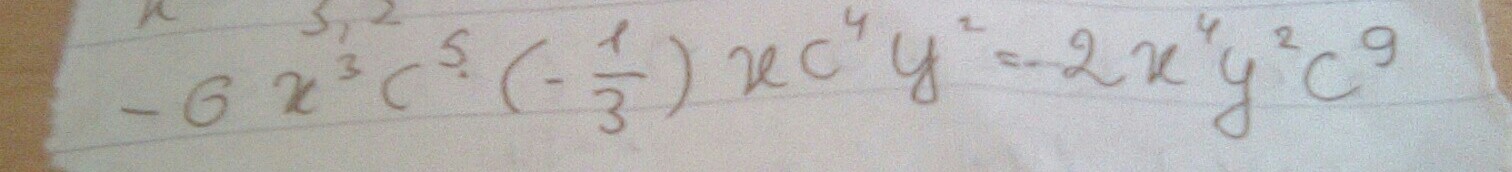 -6 x³c⁵·(-1/3) xc⁴y² = -2x⁴y²c⁹